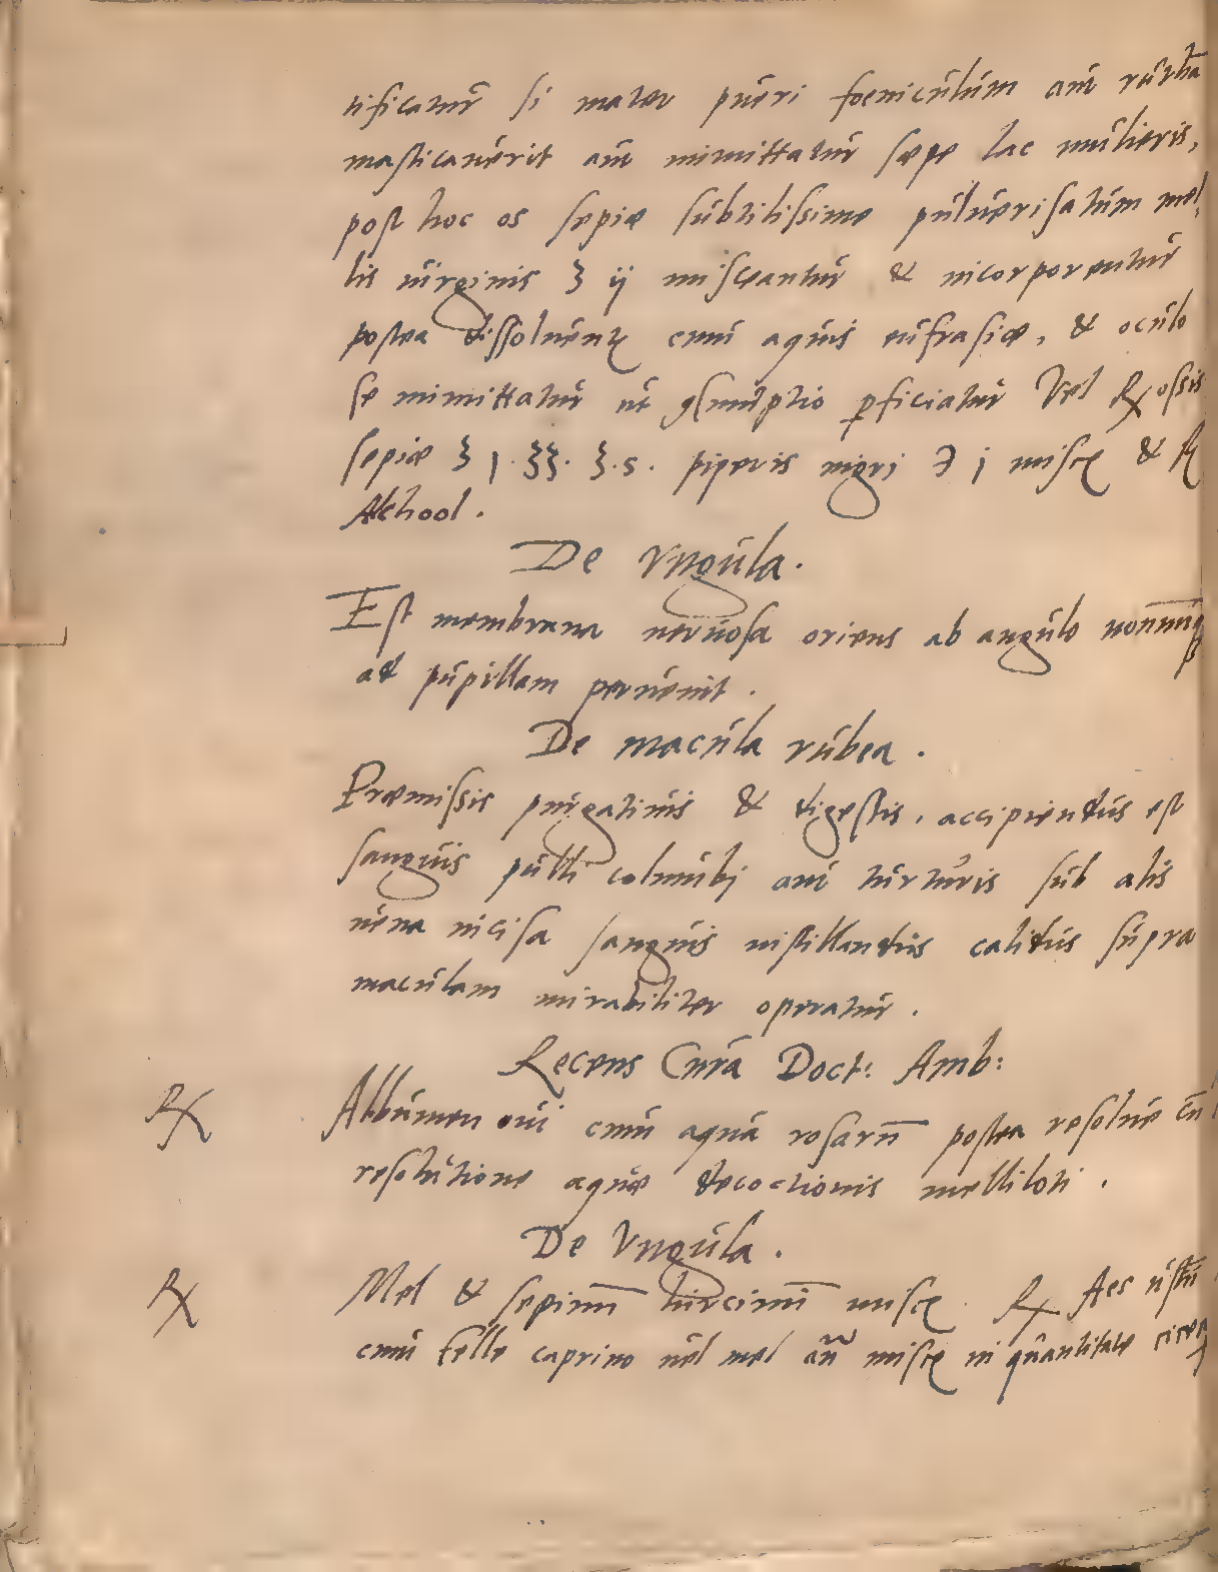 tificatur si mater pueri foeniculum aut
masticauerit aut immittatur sæpe lac mulieris,
post hoc os sepiæ subtilissime puluerisatum mel„
lis uirginis ʒ ij misceantur & incorporentur
postea dissoluentꝛ cum aquis eufrasiæ, & oculo
se immittatur ut perficiatur Vel ℞ ossis
sepiæ ʒ j piperis nigri ℈ j misce &
Alchool.
De Vngula.
Est membrana neruosa oriens ab angulo nonnunqꝫ
ad pupillam peruenit.
De macula rubea.
Præmissis purgatiuis & digestis, accipiendus est
sanguis pulli columbi aut turturis sub alis
uena incisa sanguis instillandus calidus supra
maculam mirabiliter operatur.
Recens Cura Doct: Amb:
℞ Albumen oui cum aqua rosarū postea resolue cū
resolutione aquæ decoctionis melliloti.
De Vngula.
℞ Mel & hircinū misce ℞ Aes ustū
cum felle caprino uel mel añ misce in quantitate